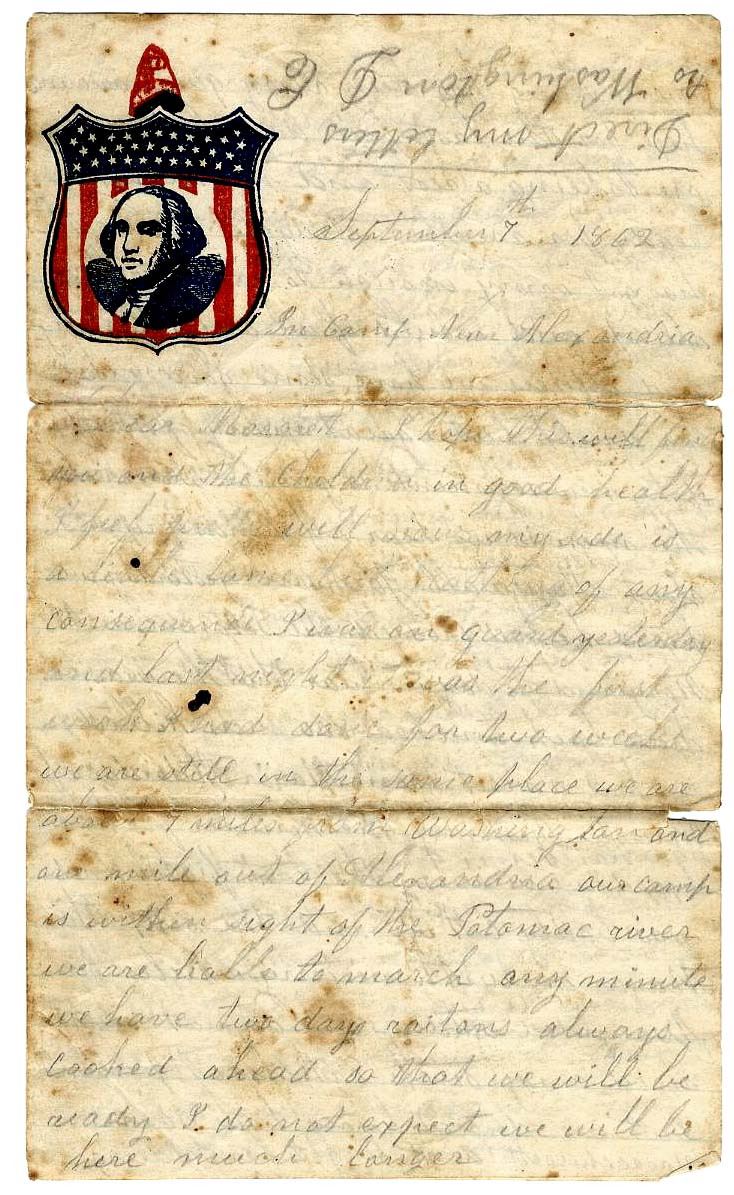 Direct my letters
to Washington D C
September 7th 1862
In Camp Near Alexandria
Dear Margaret I hope this will find
you and the Children in good health
I feel pretty well now my side is
a little lame but nothing of any
consequence I was on guard yesterday
and last night it was the first
work I had done for two weeks
we are still in the same place we are
about 7 miles from Washington and
one mile out of Alexandria our camp
is within sight of the Potomac river
we are liable to march any minute
we have two days rations always
cooked ahead so that we will be
ready I do not expect we will be
here much longer